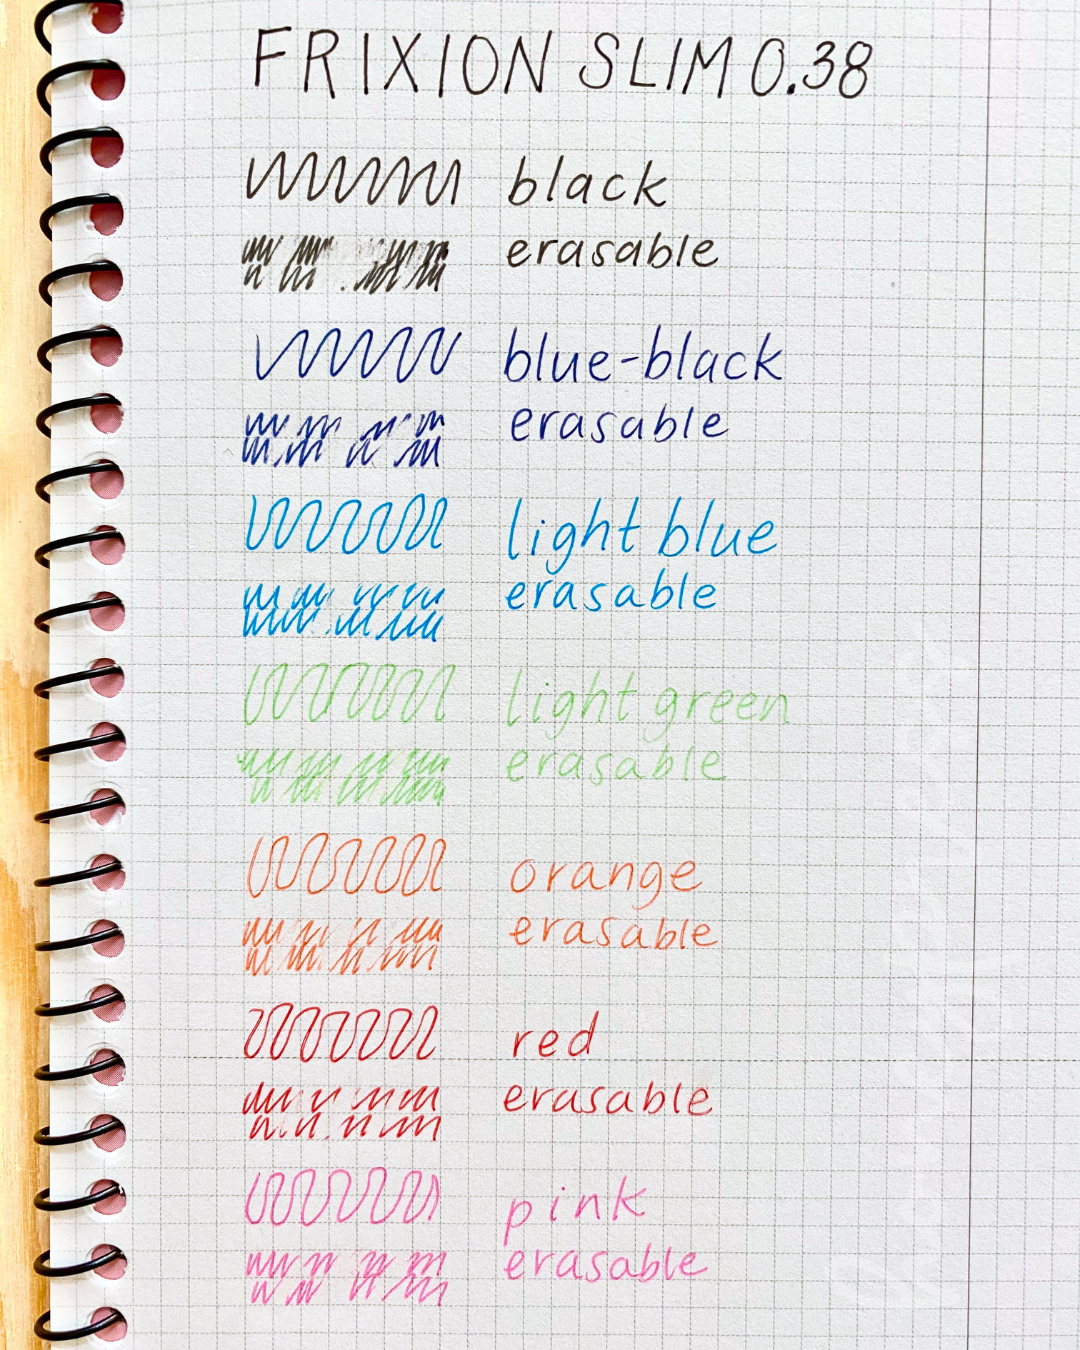 FRIXION SLIM 0.38
black
erasable
blue-black
erasable
light blue
erasable
light green
erasable
orange
erasable
red
erasable
pink
erasable